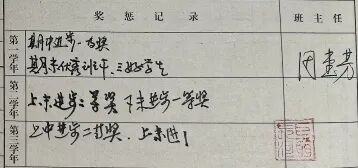 奖惩记录
班主任
第一学年
期中进步一等奖
期末优秀班干、三好学生
第二学年
上.末进步二等奖 下末进步一等奖
第三学年
上中进步二等奖 上末进